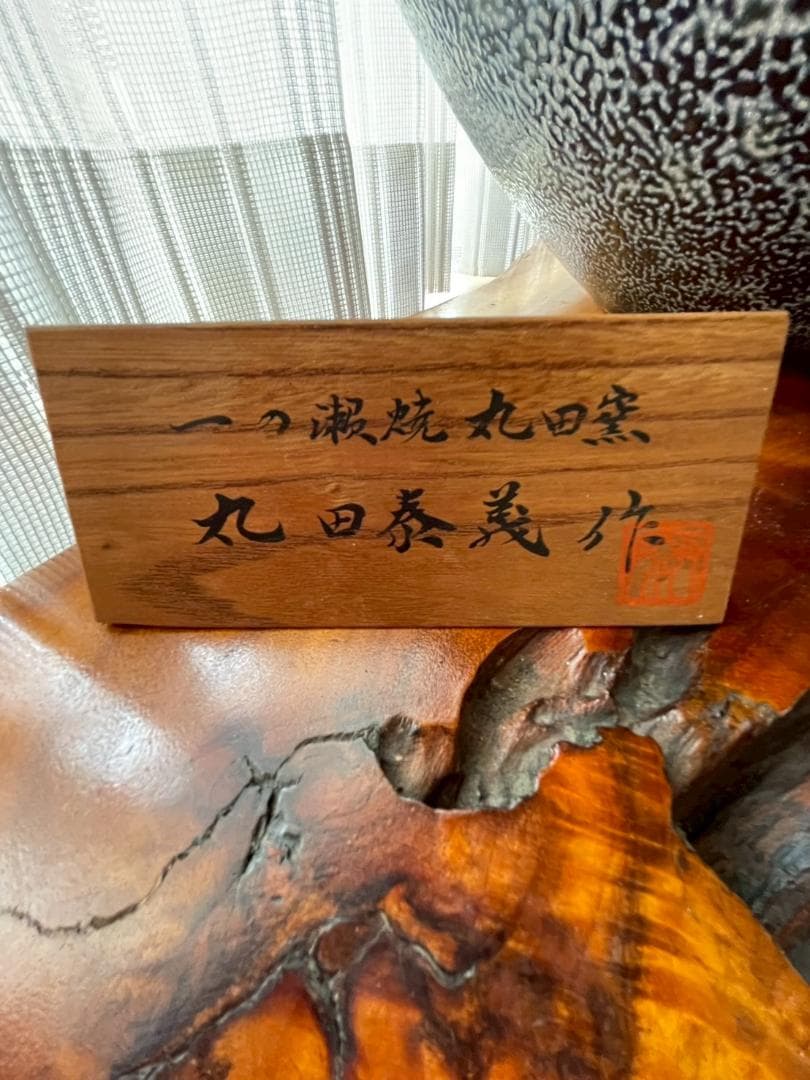 一の瀬焼 丸田窯
丸田泰義作